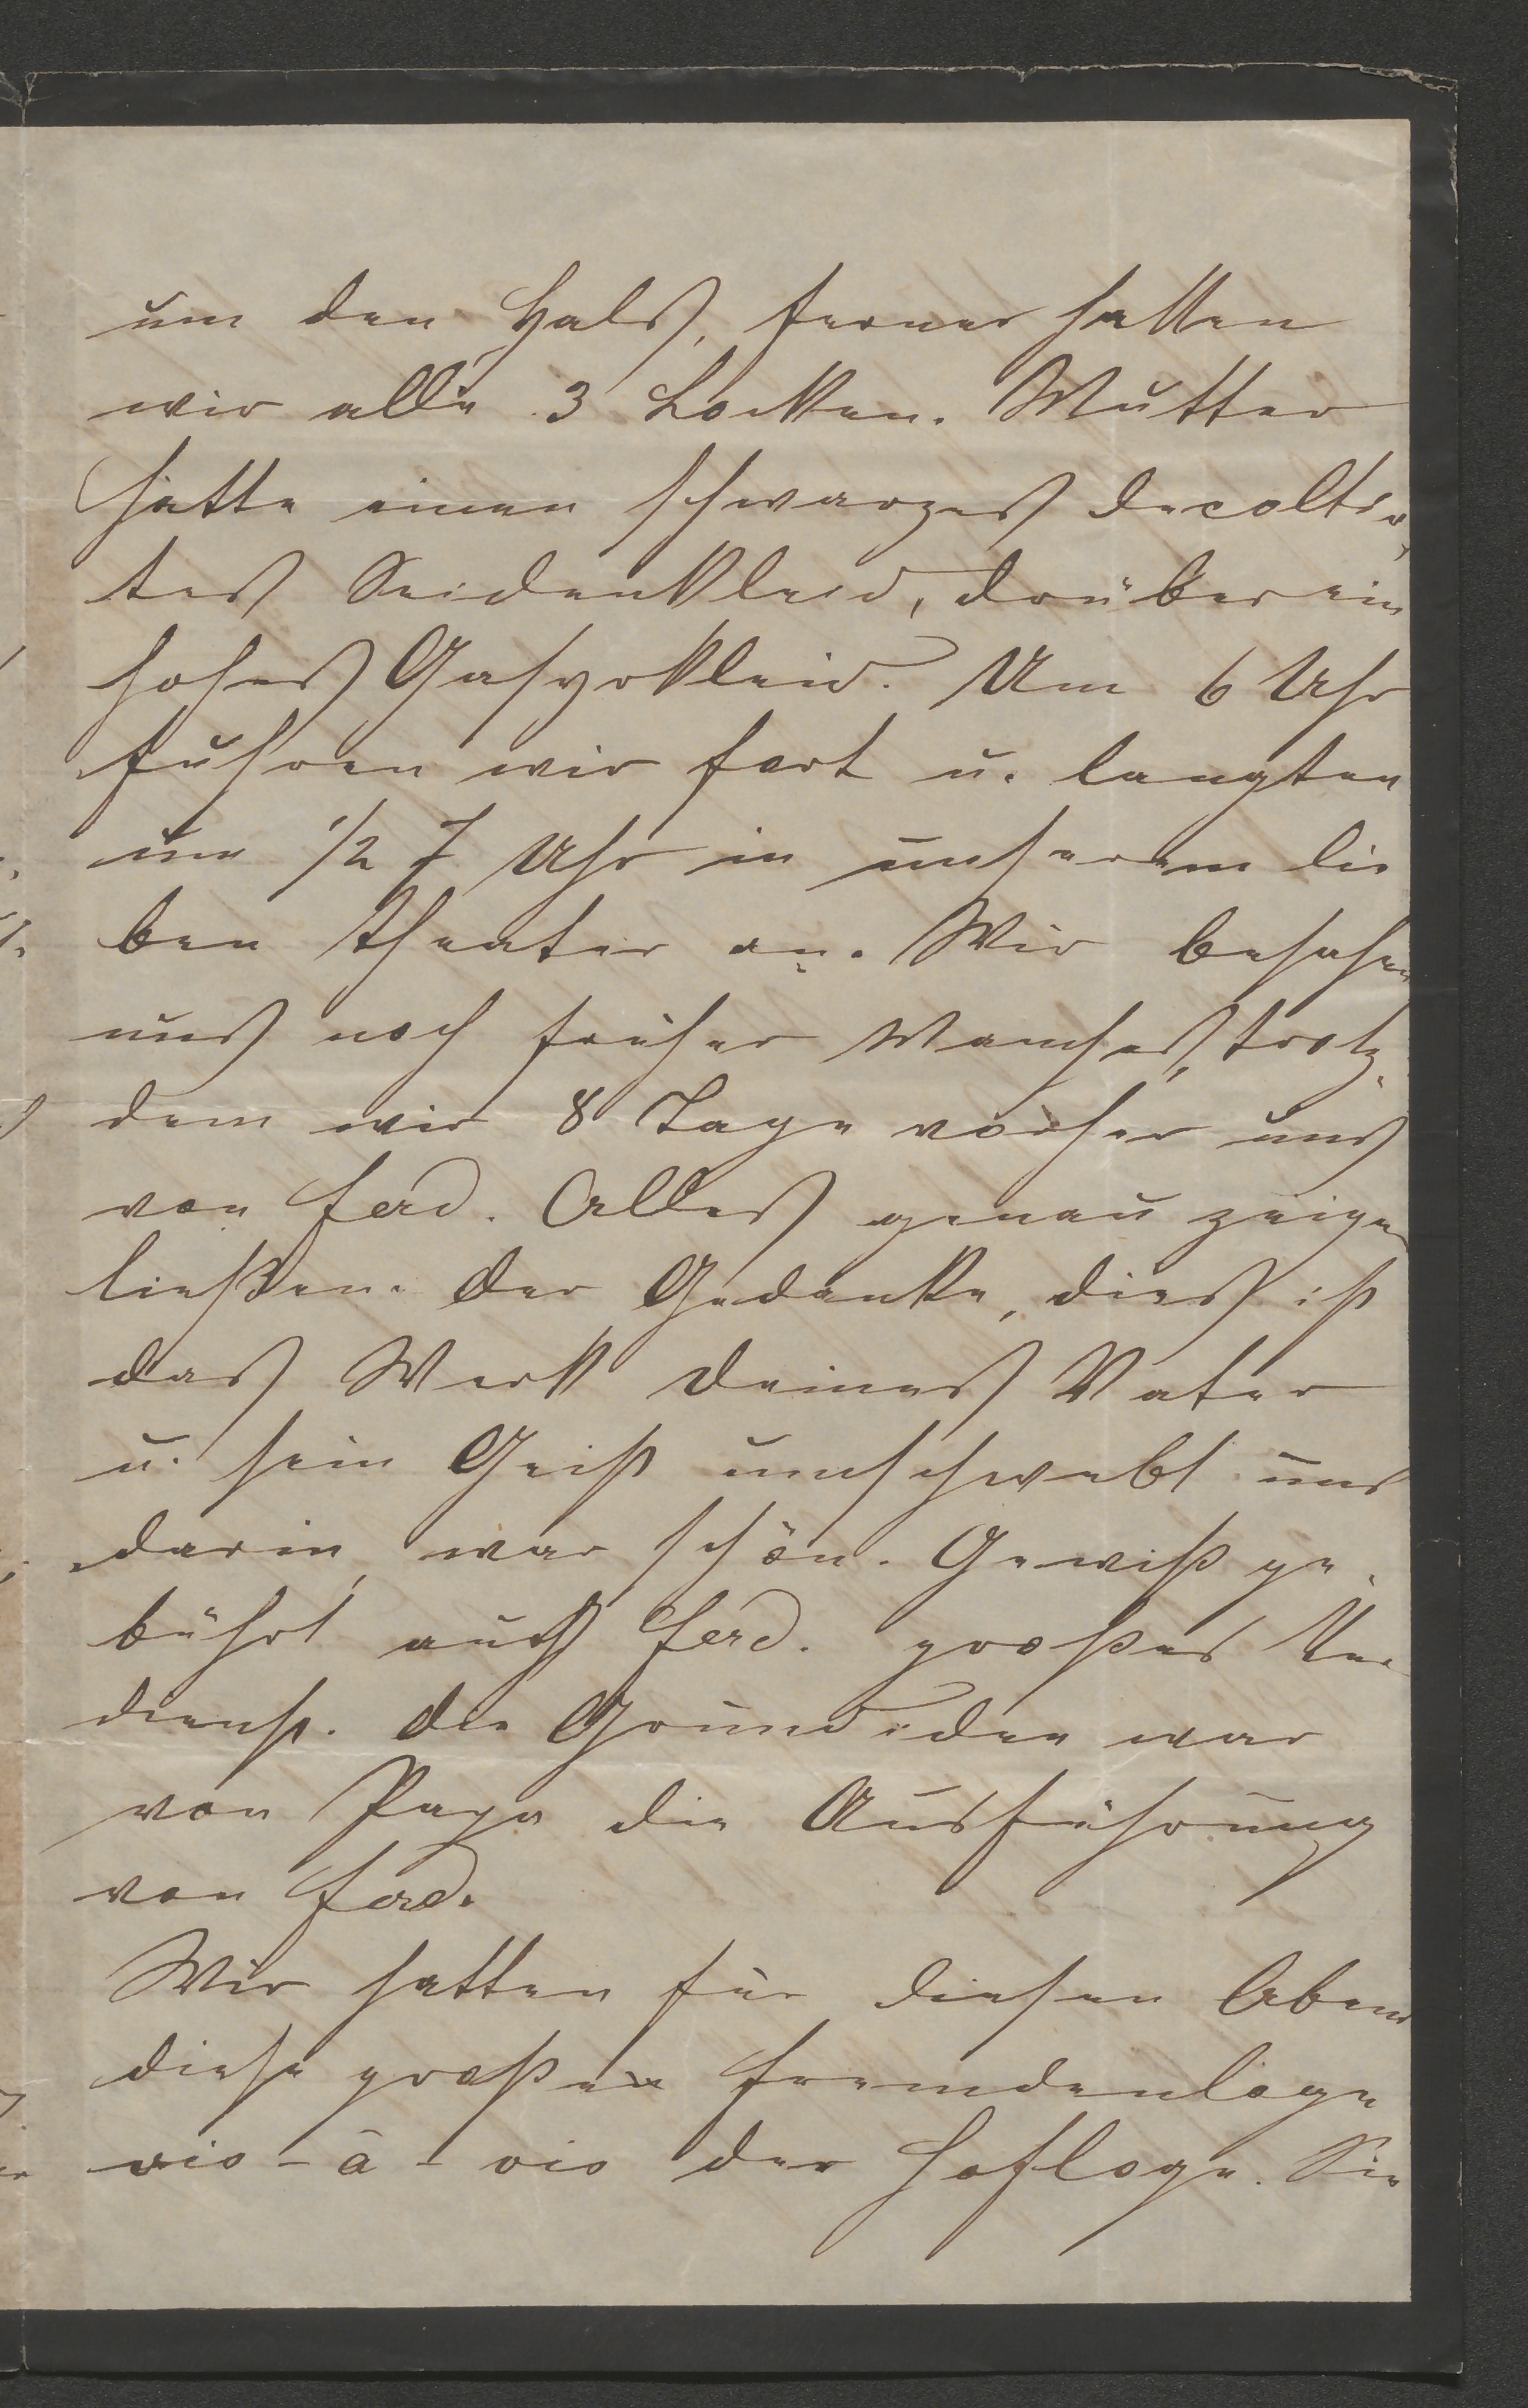 um den Hals, ferner hatten
wir alle 3 Locken. Mutter
hatte einen schwarzes decoltir,
tes Seidenkleid, drüber ein
hohes Gaßykleid. Um 6 Uhr
fuhren wir fort u. langten
um 1/2 7 Uhr in unserem lie
ben Theater an. Wir besahen
uns noch früher Manches, trotz
dem wir 8 Tage vorher uns
von Ferd. Alles genau zeigen
ließen. Der Gedanke, dies ist
das Werk deines Vater
u. sein Geist umschwebt uns
darin, war schön. Gewiß ge
bührt auch Ferd. großes Ver
dienst. Die Grundidee war
von Papa die Ausführung
von Ferd.
Wir hatten für diesen Abend
diese große Fremdenloge
vis-à-vis der Hofloge. Sie